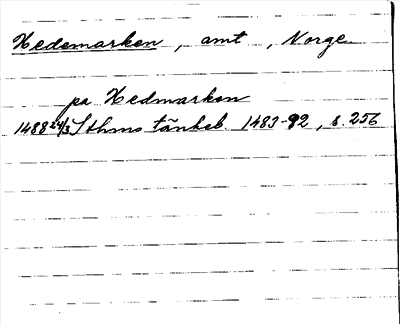 Hedemarken, amt, Norge
pa Hedmarken
1488 24/3 Sthms tänkeb. 1483-92, s. 256